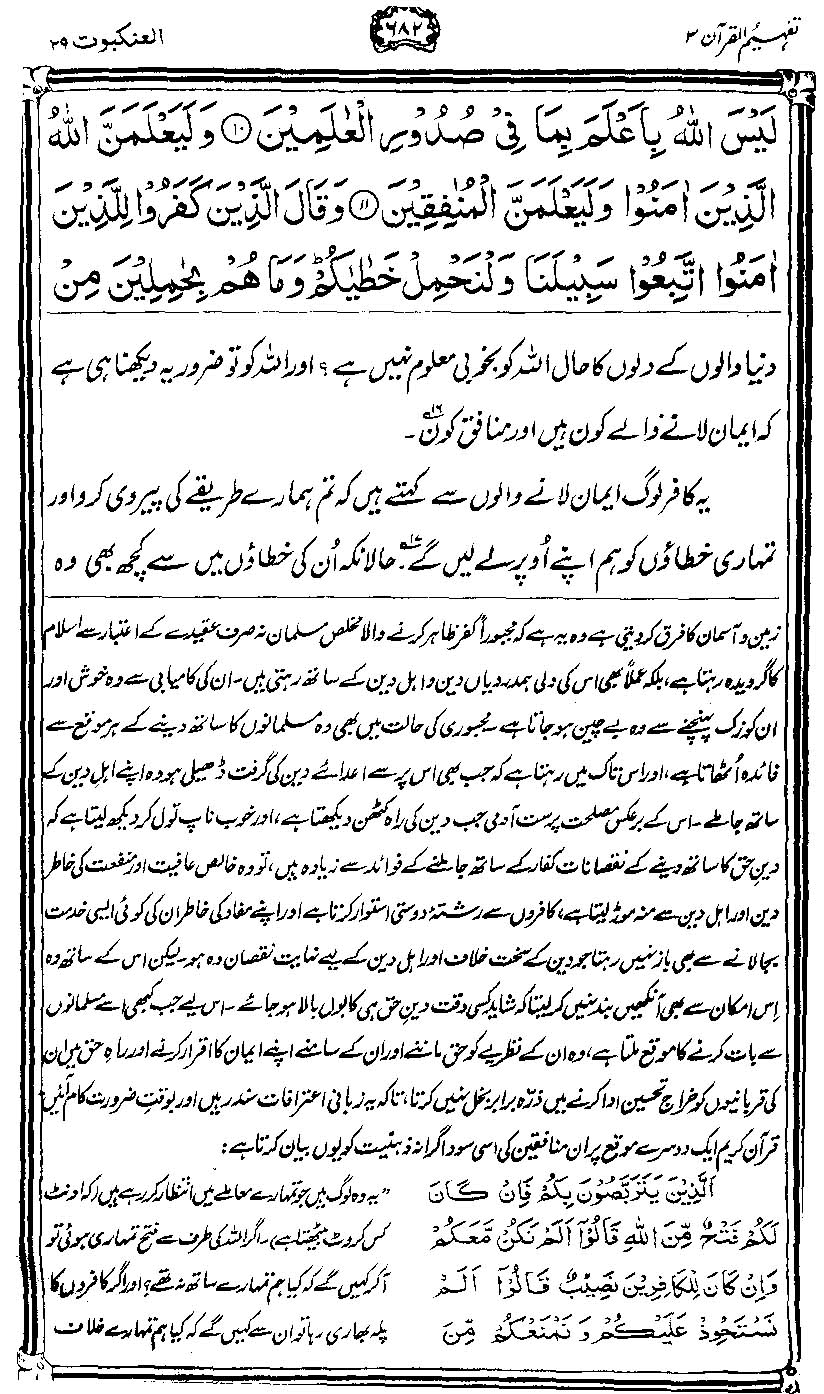 تفہیم القرآن ۳
۶۸۲
العنکبوت ۲۹
لَيْسَ اللّٰهُ بِاَعْلَمَ بِمَا فِيْ صُدُوْرِ الْعٰلَمِيْنَ ۱۰ وَلَيَعْلَمَنَّ اللّٰهُ
الَّذِيْنَ اٰمَنُوْا وَلَيَعْلَمَنَّ الْمُنٰفِقِيْنَ ۱۱ وَقَالَ الَّذِيْنَ كَفَرُوْا لِلَّذِيْنَ
اٰمَنُوا اتَّبِعُوْا سَبِيْلَنَا وَلْنَحْمِلْ خَطٰيٰكُمْ وَمَا هُمْ بِحٰمِلِيْنَ مِنْ
دنیا والوں کے دلوں کا حال اللہ کو بخوبی معلوم نہیں ہے؟ اور اللہ کو تو ضرور یہ دیکھنا ہی ہے
کہ ایمان لانے والے کون ہیں اور منافق کون۱۶۔
یہ کافر لوگ ایمان لانے والوں سے کہتے ہیں کہ تم ہمارے طریقے کی پیروی کرو اور
تمہاری خطاؤں کو ہم اپنے اُوپر لے لیں گے۱۷۔ حالانکہ اُن کی خطاؤں میں سے کچھ بھی وہ
زمین و آسمان کا فرق کر دیتی ہے وہ یہ ہے کہ مجبوراً کفر ظاہر کرنے والا مخلص مسلمان نہ صرف عقیدے کے اعتبار سے اسلام
کا گرویدہ رہتا ہے، بلکہ عملاً بھی اس کی دلی ہمدردیاں دین و اہل دین کے ساتھ رہتی ہیں۔ ان کی کامیابی سے وہ خوش اور
ان کو زک پہنچنے سے وہ بے چین ہو جاتا ہے۔ مجبوری کی حالت میں بھی وہ مسلمانوں کا ساتھ دینے کے ہر موقع سے
فائدہ اُٹھاتا ہے، اور اس تاک میں رہتا ہے کہ جب بھی اس پر سے اعدائے دین کی گرفت ڈھیلی ہو وہ اپنے اہل دین کے
ساتھ جا ملے۔ اس کے برعکس مصلحت پرست آدمی جب دین کی راہ کٹھن دیکھتا ہے، اور خوب ناپ تول کر دیکھ لیتا ہے کہ
دینِ حق کا ساتھ دینے کے نقصانات کفار کے ساتھ جا ملنے کے فوائد سے زیادہ ہیں، تو وہ خالص عافیت اور منفعت کی خاطر
دین اور اہل دین سے منہ موڑ لیتا ہے، کافروں سے رشتۂ دوستی استوار کرتا ہے اور اپنے مفاد کی خاطر ان کی کوئی ایسی خدمت
بجا لانے سے بھی باز نہیں رہتا جو دین کے سخت خلاف اور اہل دین کے لیے نہایت نقصان دہ ہو۔ لیکن اس کے ساتھ وہ
اِس امکان سے بھی آنکھیں بند نہیں کر لیتا کہ شاید کسی وقت دینِ حق ہی کا بول بالا ہو جائے۔ اس لیے جب کبھی اسے مسلمانوں
سے بات کرنے کا موقع ملتا ہے، وہ ان کے نظریے کو حق ماننے اور ان کے سامنے اپنے ایمان کا اقرار کرنے اور راہِ حق میں ان
کی قربانیوں کو خراجِ تحسین ادا کرنے میں ذرّہ برابر بخل نہیں کرتا، تاکہ یہ زبانی اعترافات سند رہیں اور بوقتِ ضرورت کام آئیں
قرآن کریم ایک دوسرے موقع پر ان منافقین کی اسی سوداگرانہ ذہنیت کو یوں بیان کرتا ہے:
اَلَّذِيْنَ يَتَرَبَّصُوْنَ بِكُمْ فَاِنْ كَانَ
لَكُمْ فَتْحٌ مِّنَ اللّٰهِ قَالُوْٓا اَلَمْ نَكُنْ مَّعَكُمْ
وَاِنْ كَانَ لِلْكَافِرِيْنَ نَصِيْبٌ قَالُوْٓا اَلَمْ
نَسْتَحْوِذْ عَلَيْكُمْ وَنَمْنَعْكُمْ مِّنَ
”یہ وہ لوگ ہیں جو تمہارے معاملے میں انتظار کر رہے ہیں (کہ اونٹ
کس کروٹ بیٹھتا ہے)۔ اگر اللہ کی طرف سے فتح تمہاری ہوئی تو
آ کر کہیں گے کہ کیا ہم تمہارے ساتھ نہ تھے؟ اور اگر کافروں کا
پلہ بھاری رہا تو ان سے کہیں گے کہ کیا ہم تمہارے خلاف